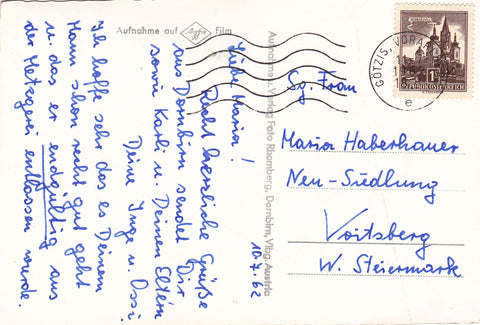 Aufnahme auf Agfa Film
10.7.62
Liebe Maria!
Recht herzliche Grüße
aus Dornbirn sendet Dir
sowie Karli u. Deinen Eltern
Deine Inge u. Ossi
Ich hoffe sehr das es Deinem
Mann schon recht gut geht
u. das er endgültig aus
der Metzgerei entlassen wurde.
Aufnahme u. Verlag Foto Rhomberg, Dornbirn, Vlbg. Austria
GÖTZIS, VOR
e
REPUBLIK ÖSTERREICH
Sg. Frau
Maria Haberhauer
Neu-Siedlung
Voitsberg
W. Steiermark